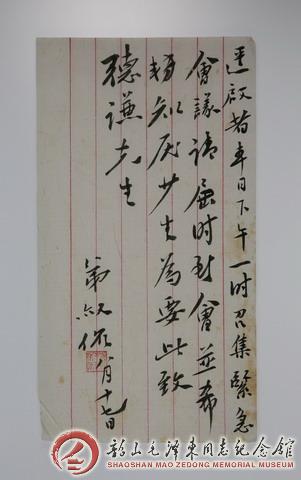 逕啟者本日下午一时召集緊急
會議请屆时到會並希
知少生為要此致
德谦先生
弟
八月十七日
韶山毛澤東同志紀念館
SHAOSHAN MAO ZEDONG MEMORIAL MUSEUM